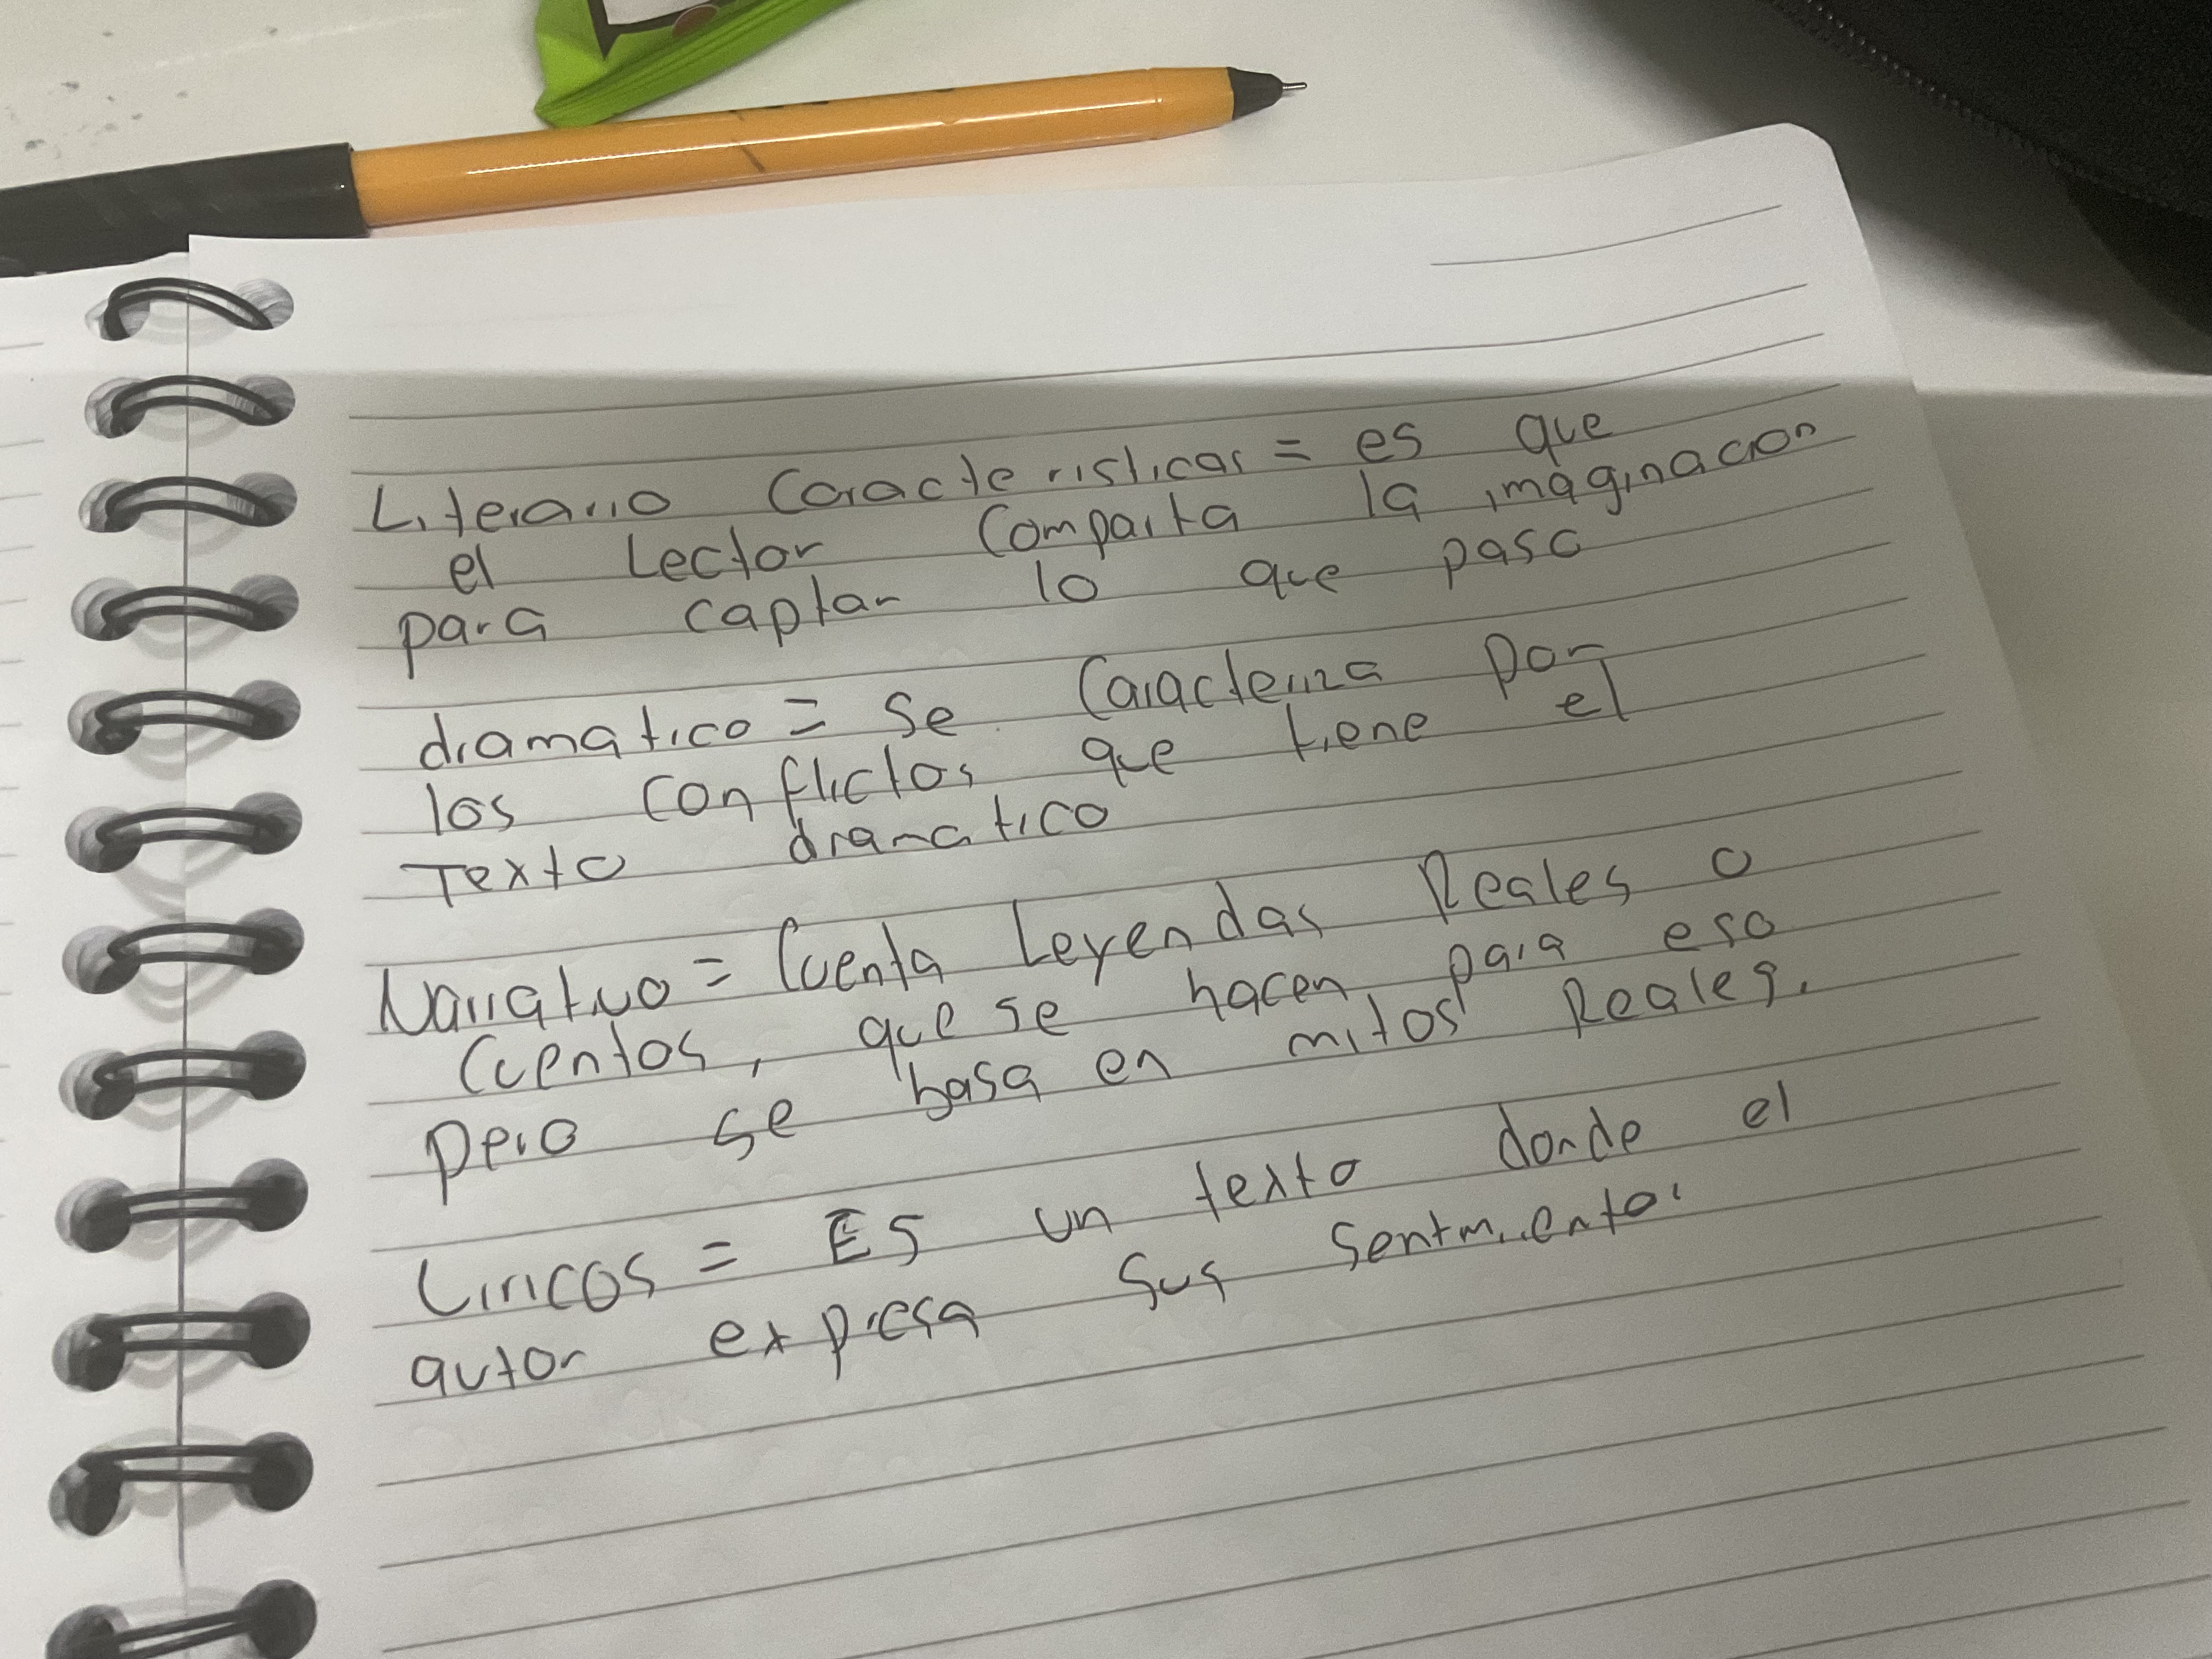 Literario Caracteristicas = es que
el Lector Comparta la imaginacion
para captar lo que paso
dramatico = Se Caracteriza por
los conflictos que tiene el
Texto dramatico
Narrativo = Cuenta Leyendas Reales o
Cuentos, que se hacen para eso
pero se basa en mitos Reales.
Liricos = ES un texto donde el
autor expresa Sus Sentmientos